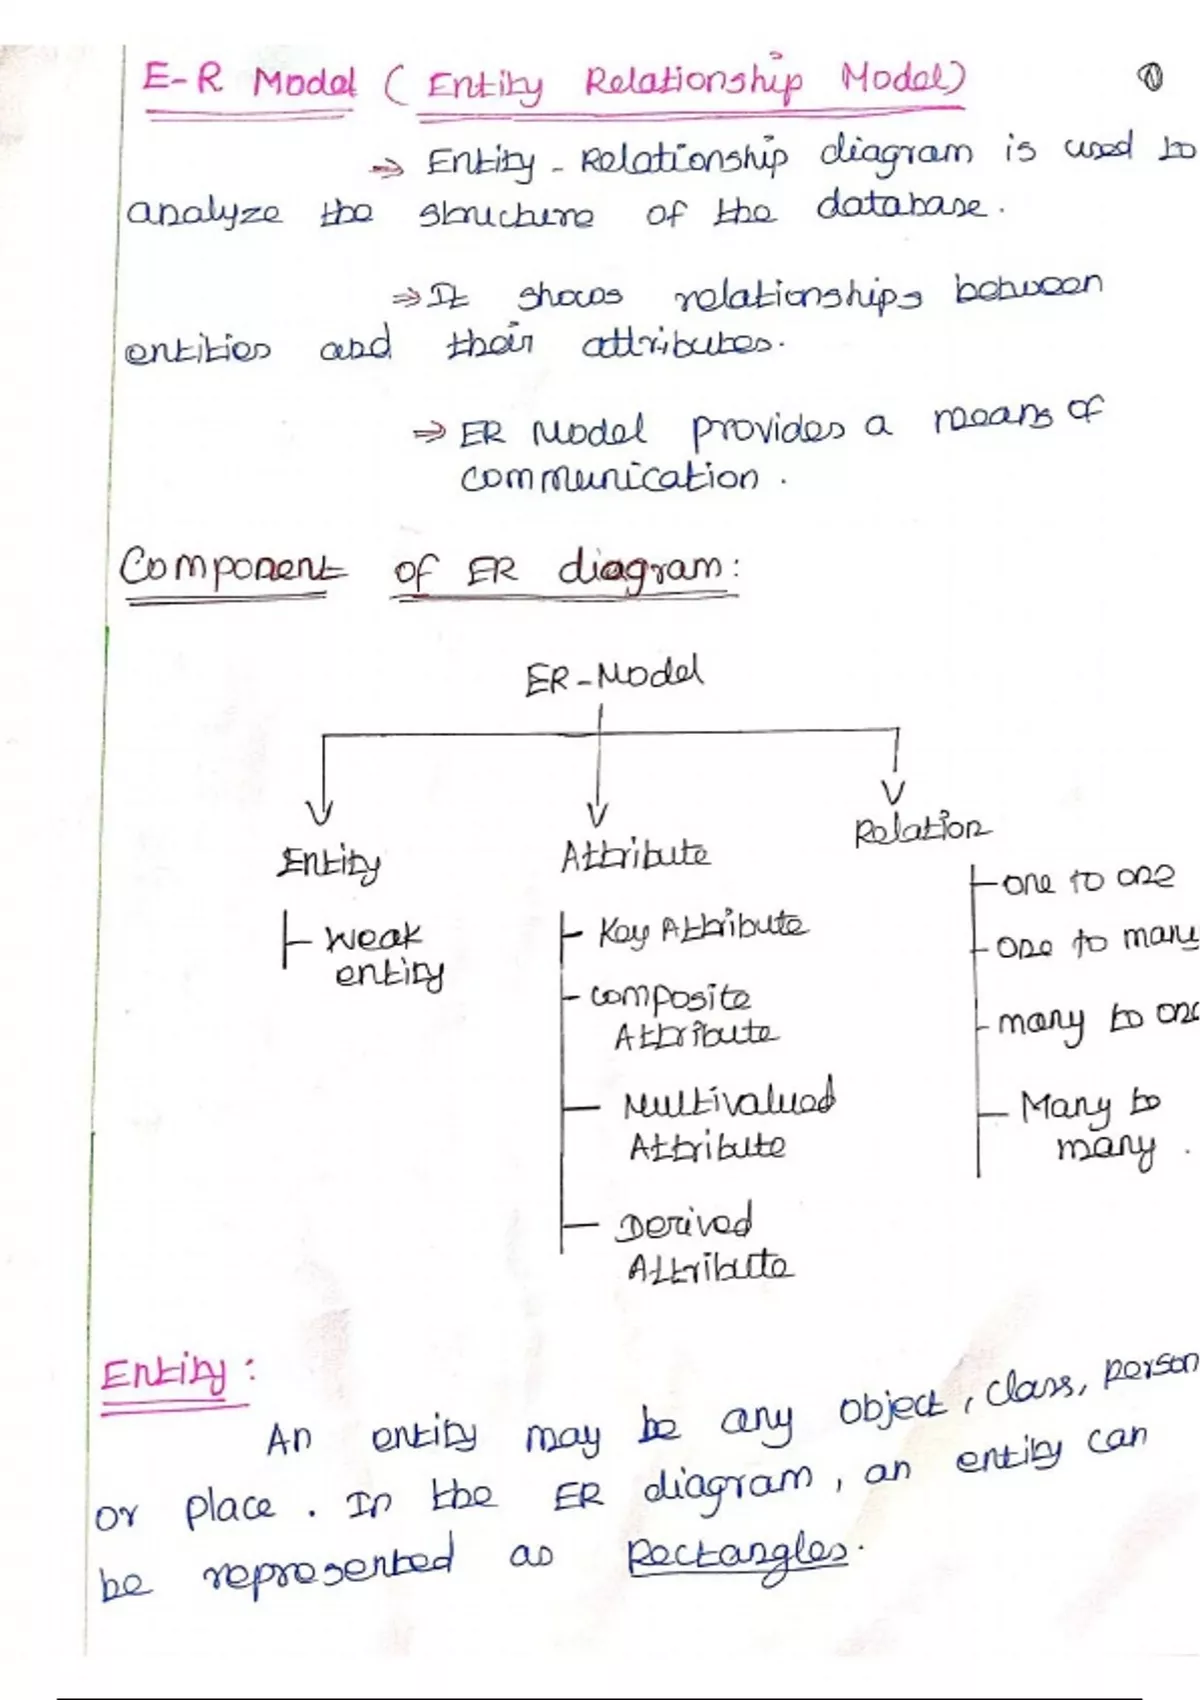 E-R Model (Entity Relationship Model)
①
⇒ Entity - Relationship diagram is used to
analyze the structure of the database.
⇒ It shows relationships between
entities and their attributes.
⇒ ER Model provides a means of
communication.
Component of ER diagram:
ER-Model
Entity
Attribute
Relation
Weak
entity
Key Attribute
composite
Attribute
Multivalued
Attribute
Derived
Attribute
one to one
one to many
many to one
Many to
many.
Entity:
An entity may be any object, class, person
or place. In the ER diagram, an entity can
be represented as Rectangles.